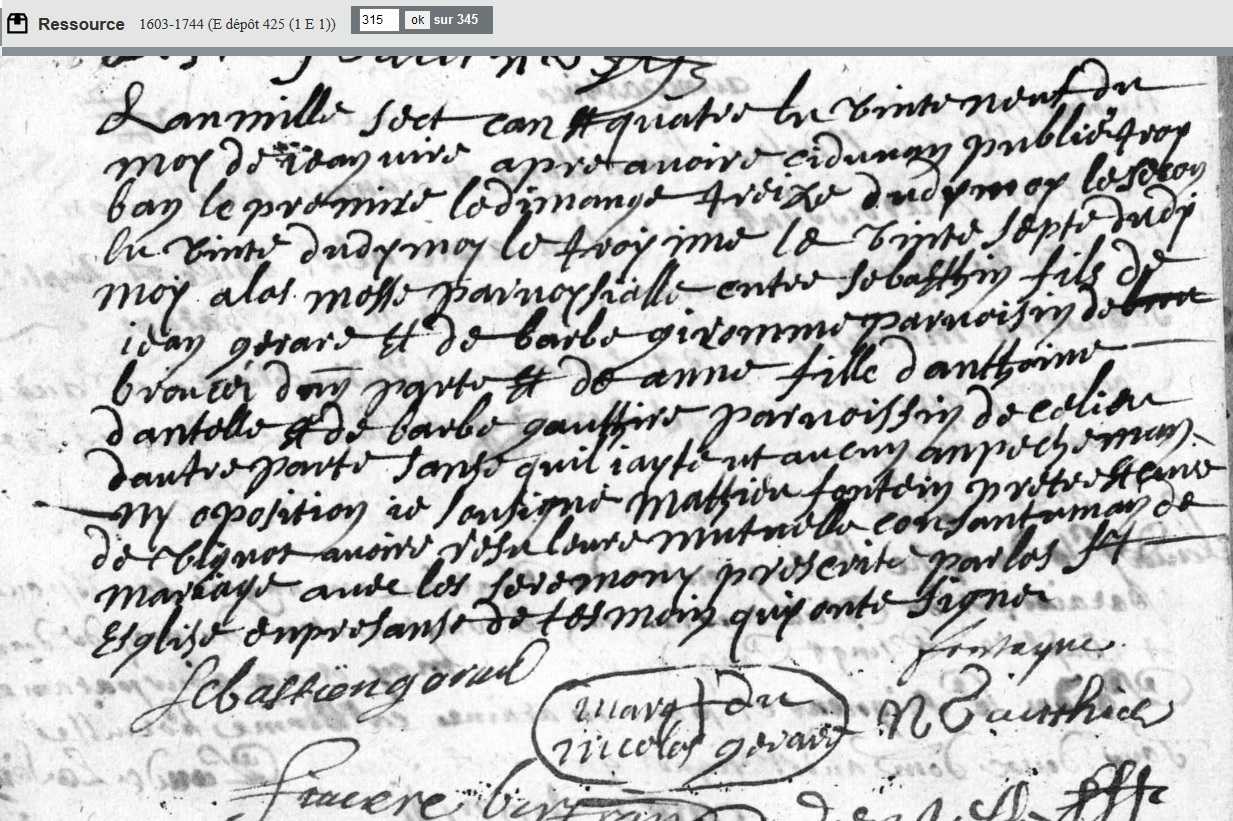 Ressource 1603-1744 (E dépôt 425 (1 E 1)) 315 ok sur 345
Lan mille sect can et quatre le vinte neuf du
moy de iean vire apre avoire ciduvan publiè troy
ban le premire ledimange treize dudy moy le secon
le vinte dudy moy le troy ime le vinte septe dudy
moy a las messe parroyssialle entre sebasthin fils de
iean gerard et de barbe giromme parroisin de
brouvei dun parte et de anne fille danthoine
dantelle et de barbe gauthire parroissin de celieu
dautre parte sanse quil iayte ut aucun anpecheman
ny oposition ie sousigne Mathieu fontein pretre et cure
de avoire resu leure mutuelle consantuman de
mariage avec les seremony prescrite par las ste
Esglise en presanse de tesmoin quiy onte signer
sebastien gerard fontayne
marq du N Gauthier
nicolas gerard